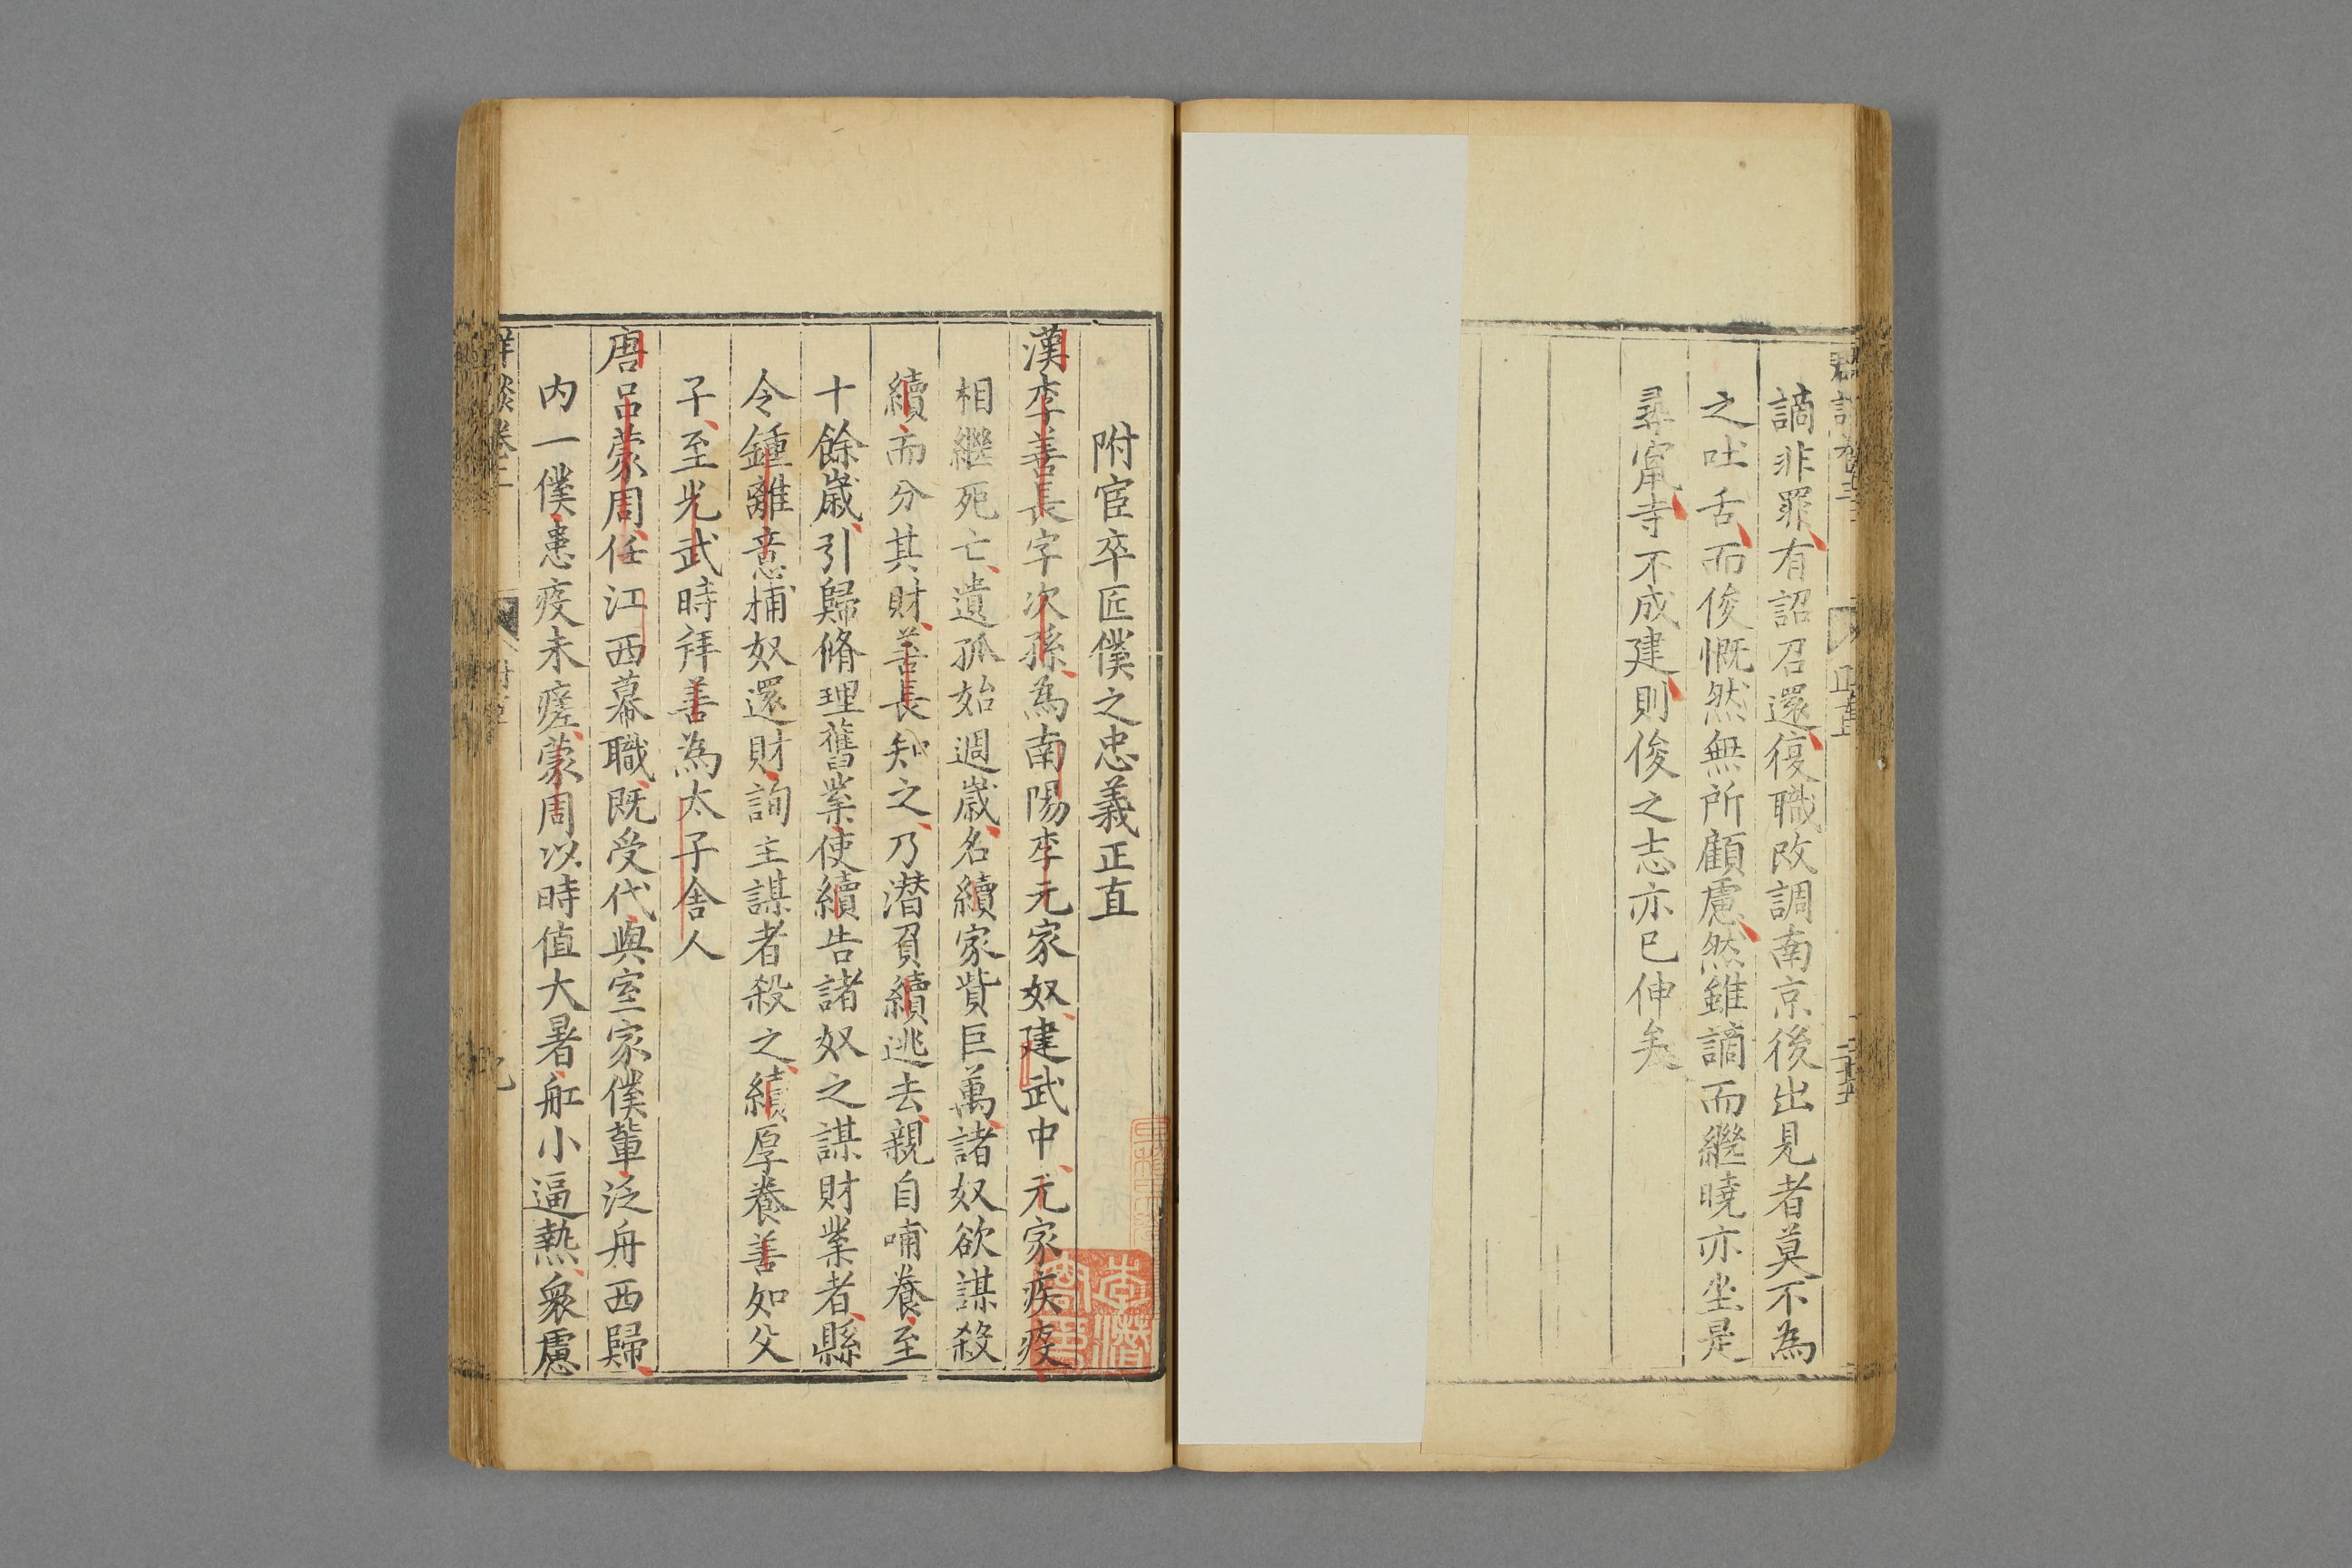 謫非罪有詔召還復職改調南京後出見者莫不為
之吐舌而俊慨然無所顧慮然雖謫而繼曉亦坐是
尋竄寺不成建則俊之志亦已伸矣
附宦卒匠僕之忠義正直
漢李善長字次孫為南陽李元家奴建武中元家疾疫
相繼死亡遺孤始週歲名續家貲巨萬諸奴欲謀殺
續而分其財善長知之乃潛負續逃去親自哺養至
十餘歲引歸脩理舊業使續告諸奴之謀財業者縣
令鍾離意捕奴還財詢主謀者殺之續厚養善如父
子至光武時拜善為太子舍人
唐呂蒙周任江西幕職既受代與室家僕輩泛舟西歸
內一僕患疫未瘥蒙周以時值大暑舡小逼熱衆慮